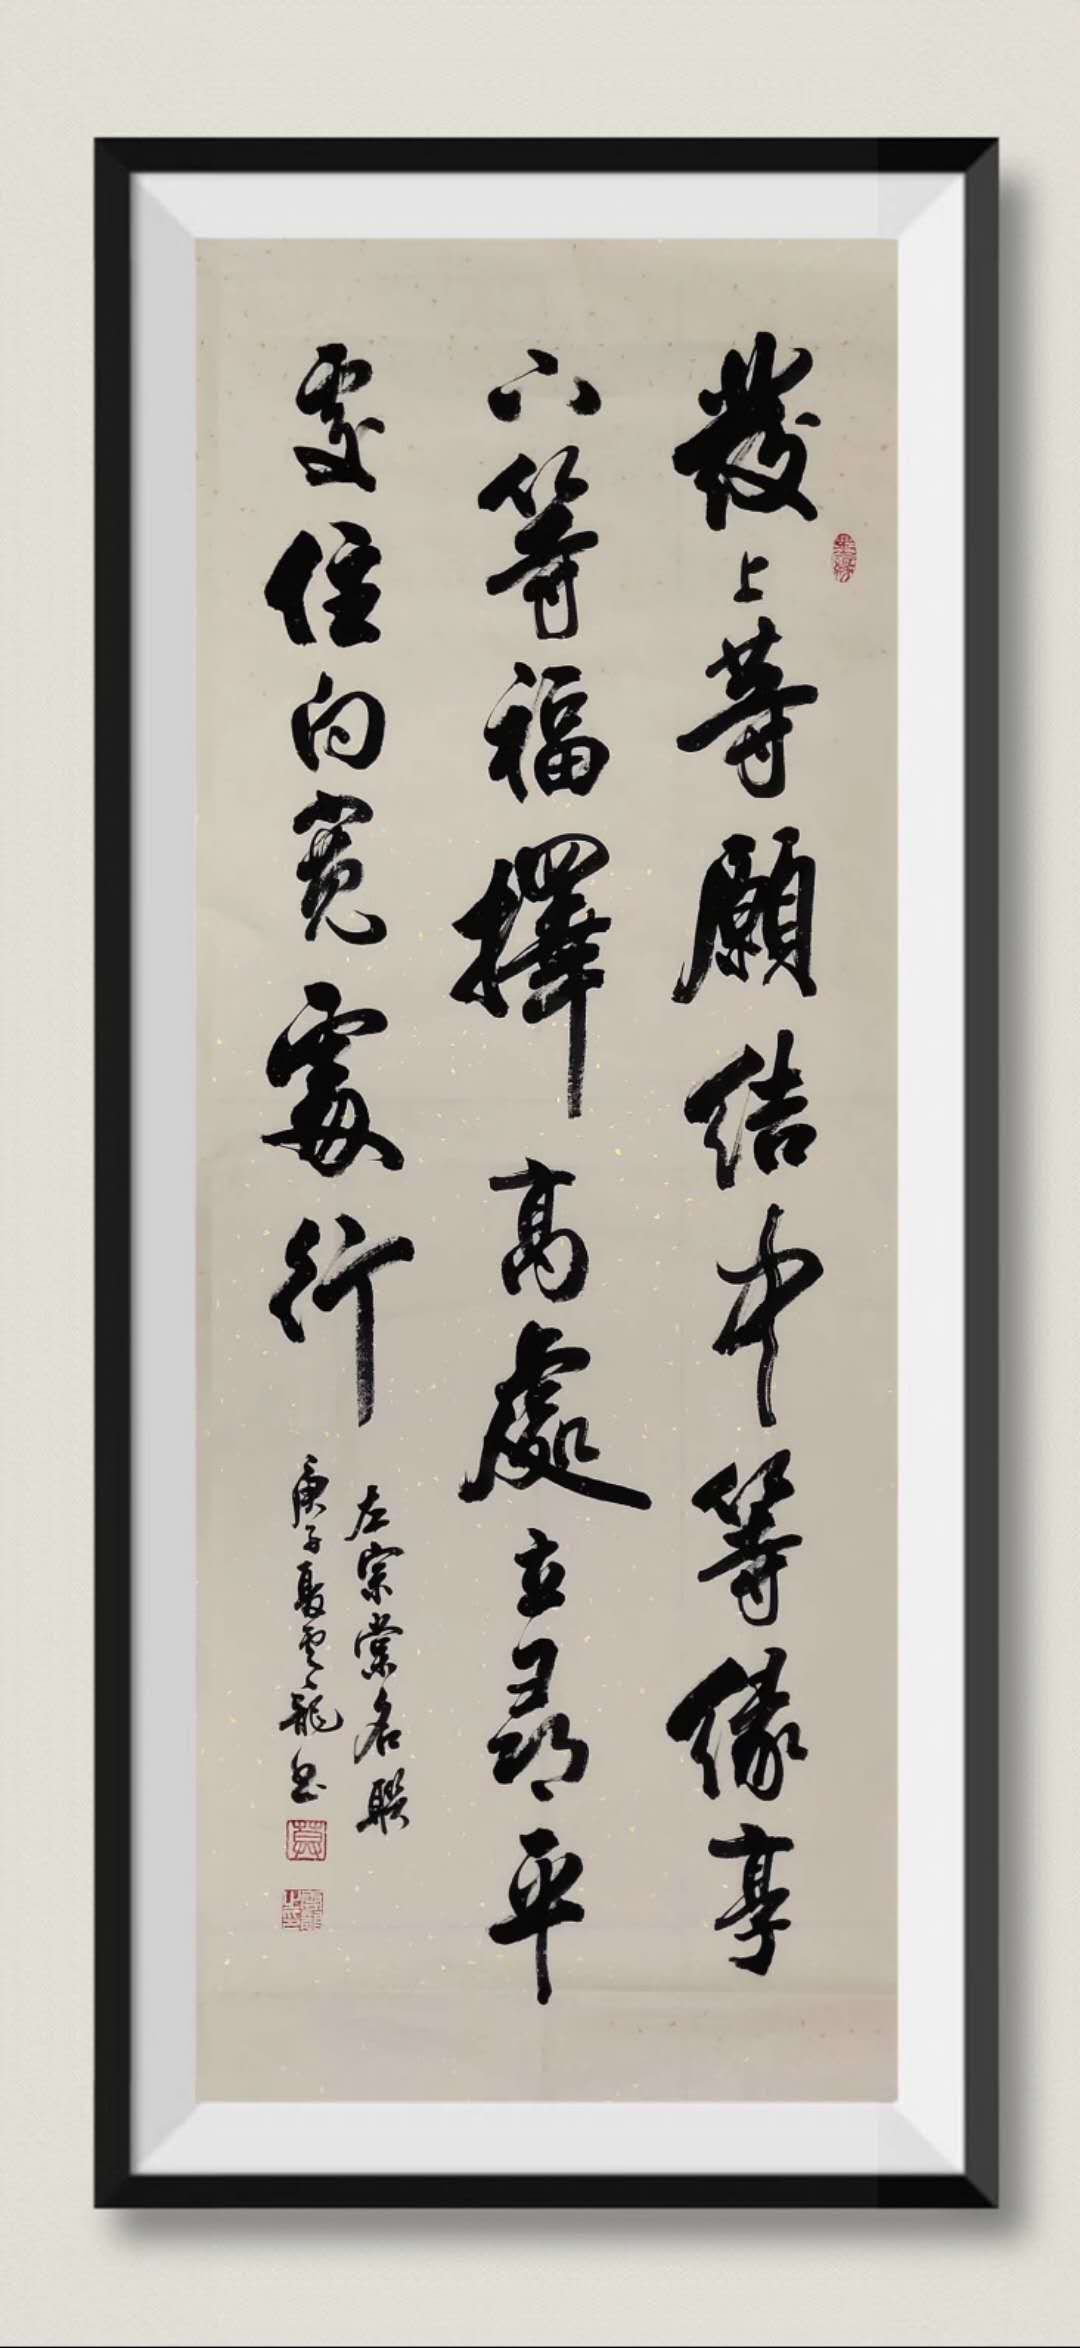 發上等願結中等緣享
下等福擇高處立尋平
處住向寬處行
左宗棠名聯
庚子夏雲龍書